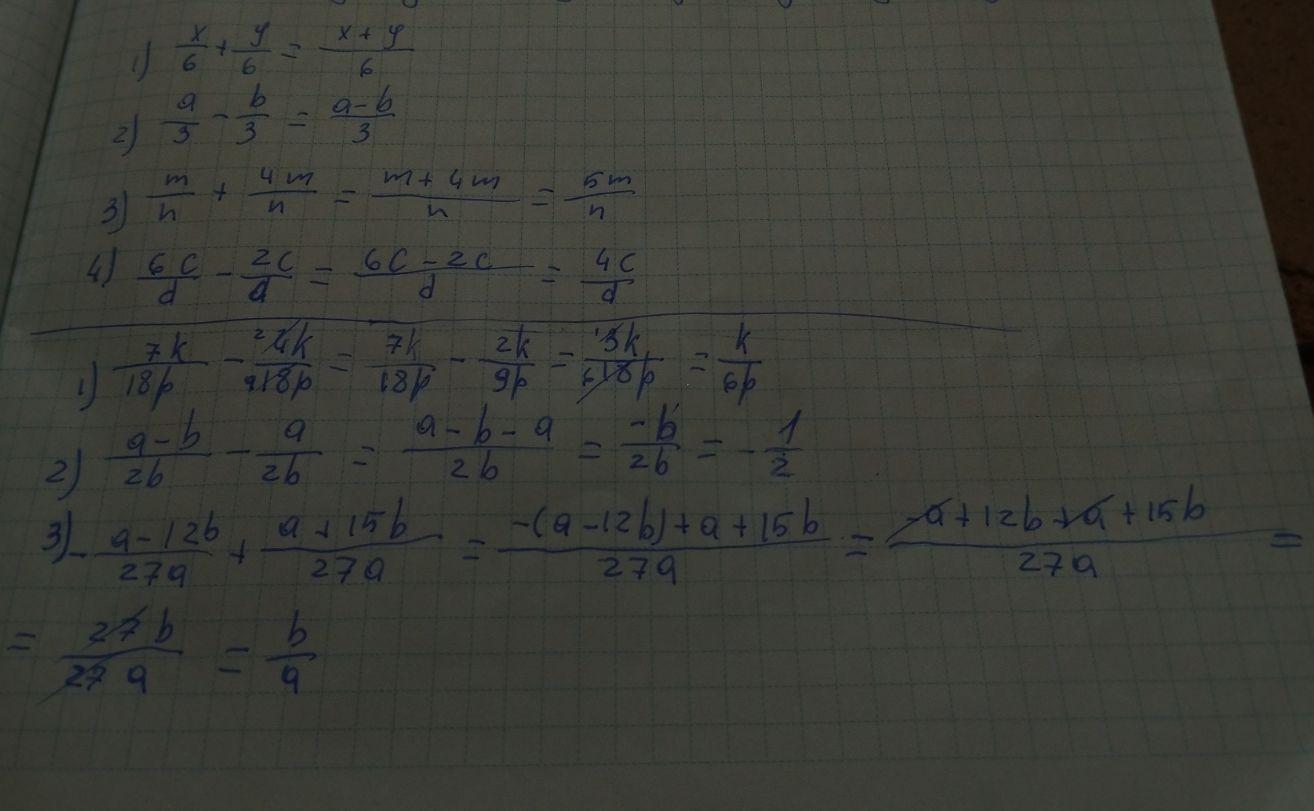 1) x/6 + y/6 = (x + y)/6
2) a/3 - b/3 = (a - b)/3
3) m/n + 4m/n = (m + 4m)/n = 5m/n
4) 6c/d - 2c/d = (6c - 2c)/d = 4c/d
1) 7k/18p - 2 4k/9 18p = 7k/18p - 2k/9p = 1 3k/6 18p = k/6p
2) (a - b)/2b - a/2b = (a - b - a)/2b = -b/2b = - 1/2
3) - (a - 12b)/27a + (a + 15b)/27a = (-(a - 12b) + a + 15b)/27a = (-a + 12b + a + 15b)/27a =
= 27b/27a = b/a